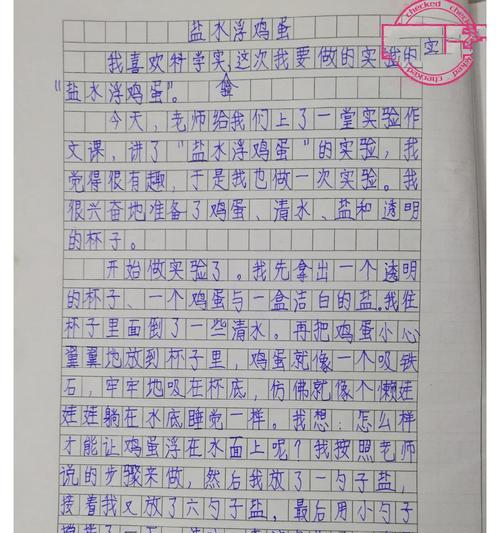 盐水浮鸡蛋
我喜欢科学实验,这次我要做的实验是
"盐水浮鸡蛋"。
今天,老师给我们上了一堂实验作
文课,讲了"盐水浮鸡蛋"的实验,我
觉得很有趣,于是我也做一次实验。我
很兴奋地准备了鸡蛋、清水、盐和透明
的杯子。
开始做实验了。我先拿出一个透明
的杯子、一个鸡蛋与一盒洁白的盐。我往
杯子里面倒了一些清水。再把鸡蛋小心
翼翼地放到杯子里,鸡蛋就像一个吸铁
石,牢牢地吸在杯底,仿佛就像个懒娃
娃娃躺在水底睡觉一样。我想:怎么样
才能让鸡蛋浮在水面上呢?我按照老师
说的步骤来做,然后我放了一勺子盐,
接着我又放了六勺子盐,最后用小勺子
checked
checked